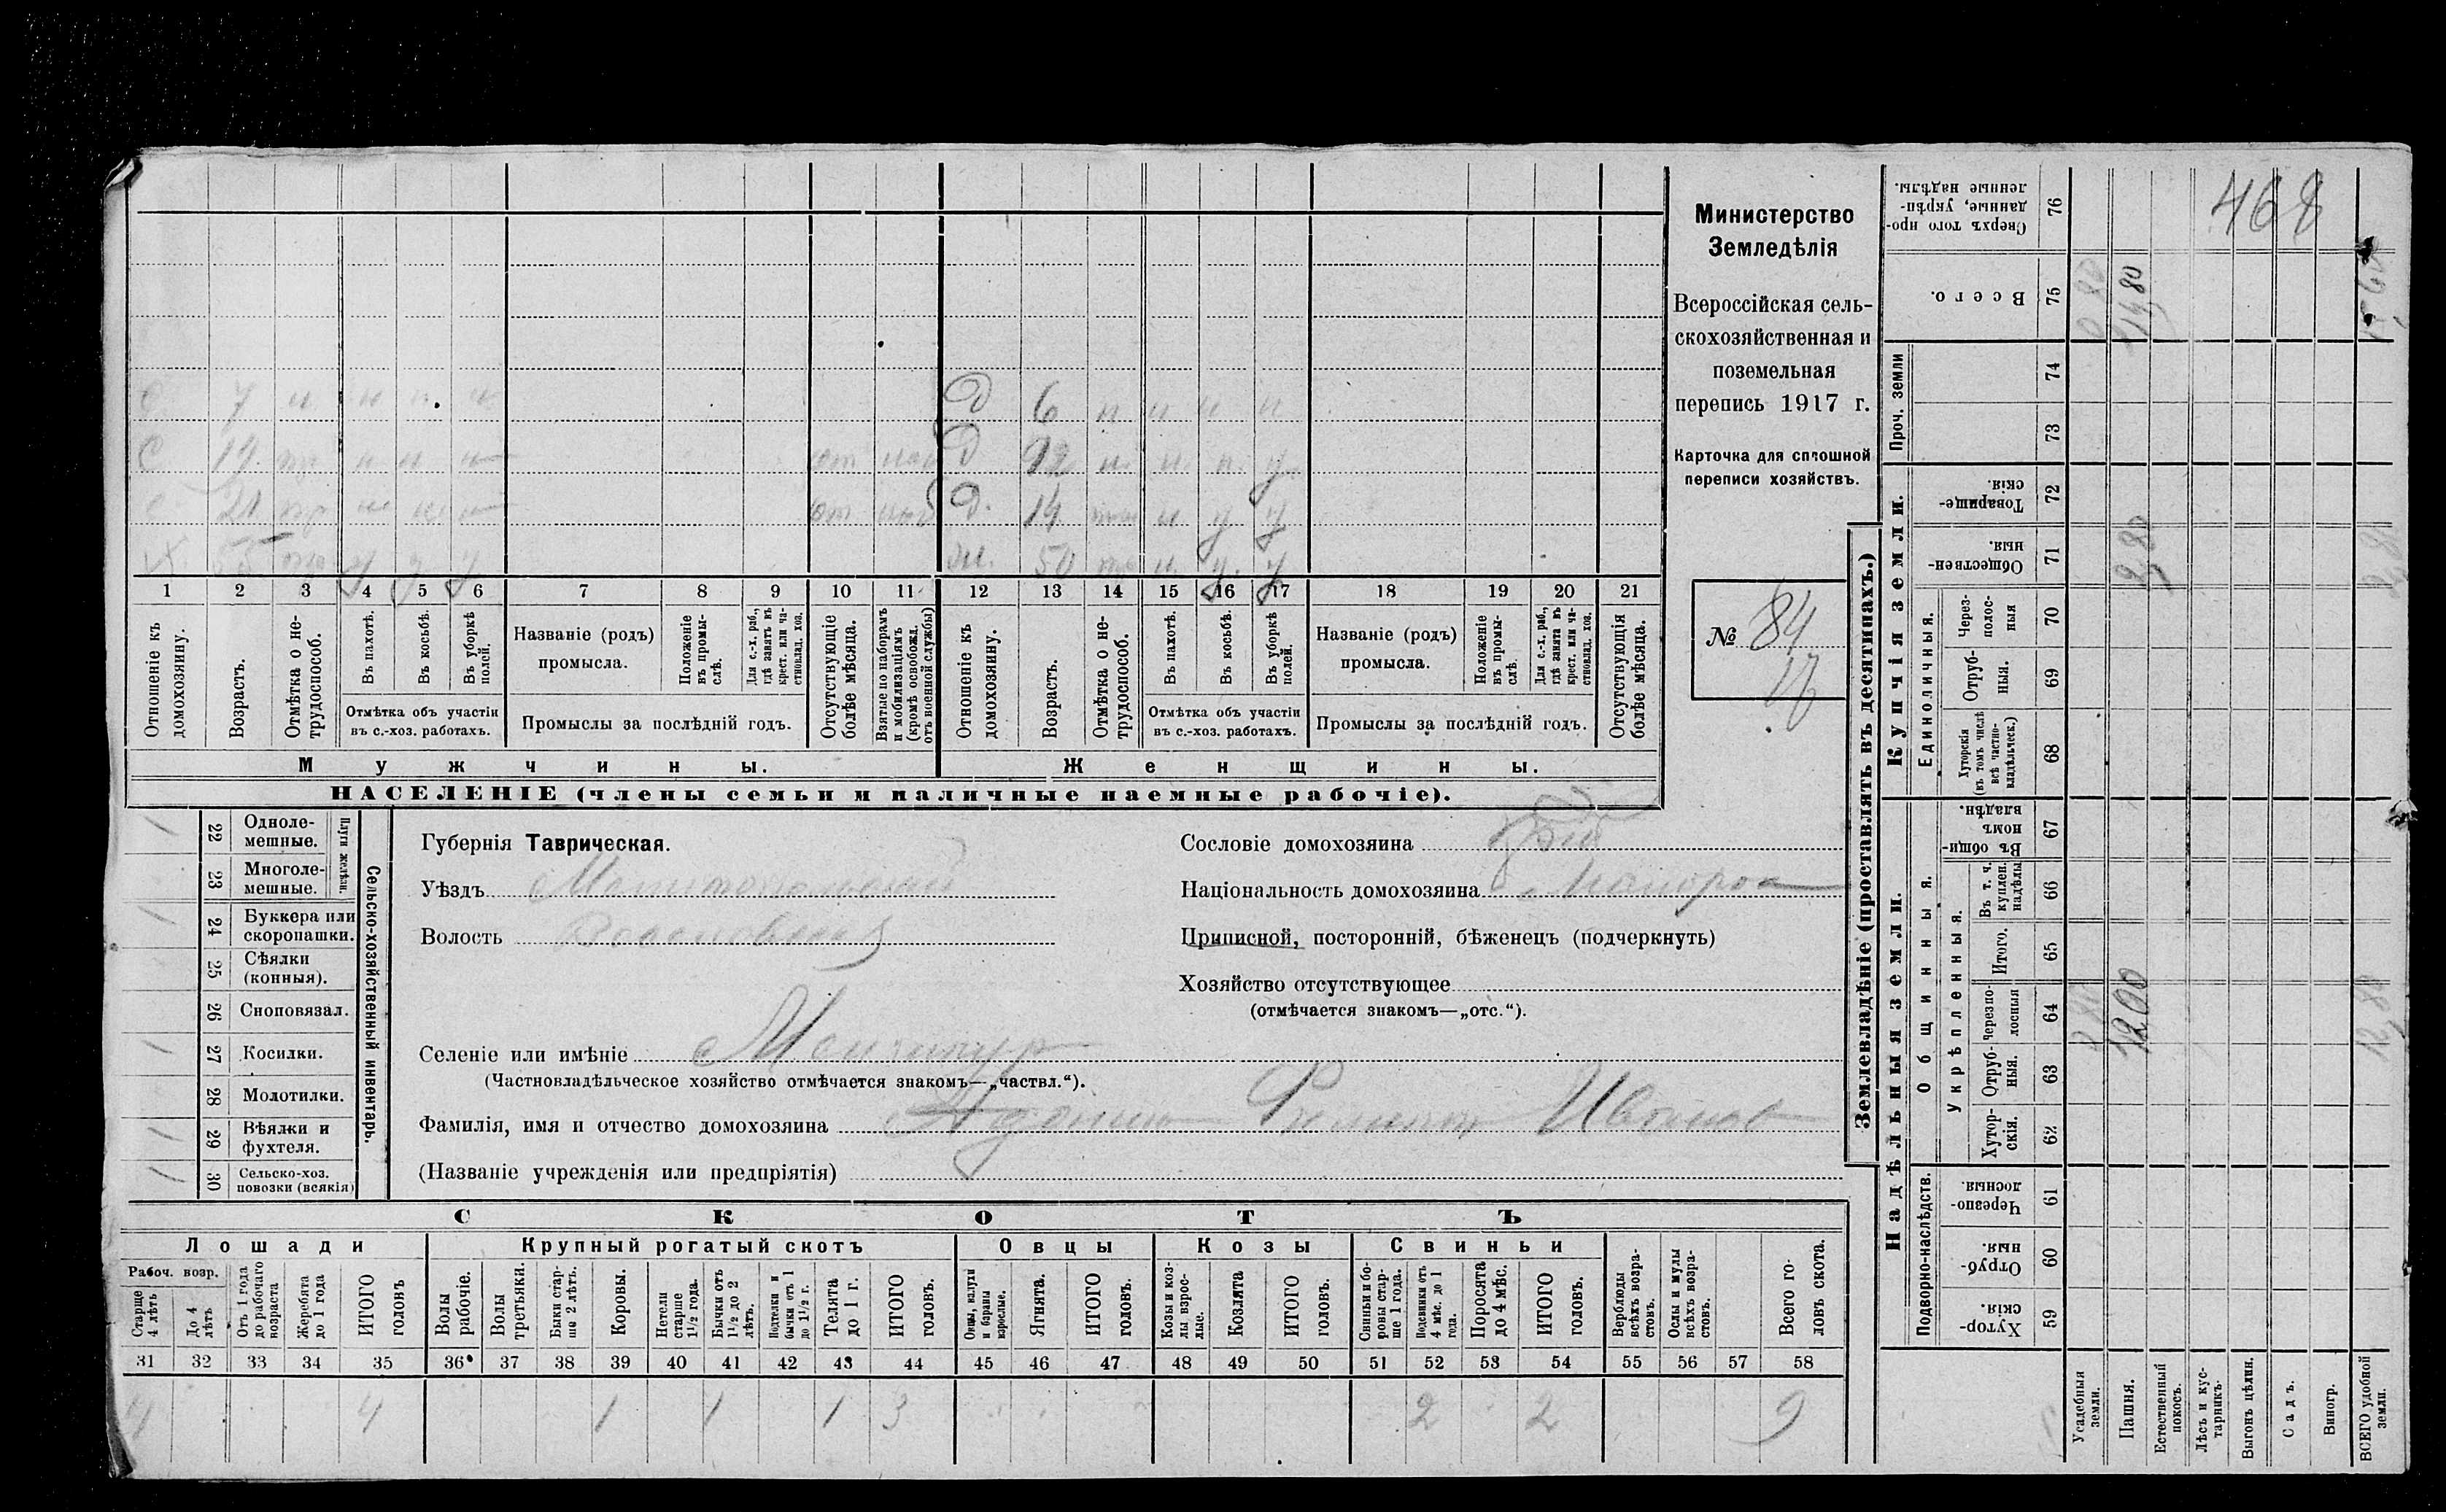 С 7 н н н н
Д 6 н н н н
С 19 тр н н н от наб
Д 12 н н н у
С 21 тр н н н от наб
Д. 14 н у у
Х. 55 у у у
ж. 50 н у. у
1 2 3 4 5 6 7 8 9 10 11 12 13 14 15 16 17 18 19 20 21
Отношеніе къ домохозяину.
Возрастъ.
Отмѣтка о не-трудоспособ.
Въ пахотѣ.
Въ косьбѣ.
Въ уборкѣ полей.
Отмѣтка объ участіи
въ с.-хоз. работахъ.
Названіе (родъ)
промысла.
Положеніе въ промы-слѣ.
Для с.-х. раб., гдѣ занятъ въ крест. или ча-стновлад. хоз.
Промыслы за послѣдній годъ.
Отсутствующіе болѣе мѣсяца.
Взятые по наборамъ и мобилизаціямъ (кромѣ освобожд. отъ военной службы)
Отношеніе къ домохозяину.
Возрастъ.
Отмѣтка о не-трудоспособ.
Въ пахотѣ.
Въ косьбѣ.
Въ уборкѣ полей.
Отмѣтка объ участіи
въ с.-хоз. работахъ.
Названіе (родъ)
промысла.
Положеніе въ промы-слѣ.
Для с.-х. раб., гдѣ занята въ крест. или ча-стновлад. хоз.
Промыслы за послѣдній годъ.
Отсутствующія болѣе мѣсяца.
Мужчины.
Женщины.
НАСЕЛЕНІЕ (члены семьи и наличные наемные рабочіе).
Министерство
Земледѣлія
Всероссійская сель-
скохозяйственная и
поземельная
перепись 1917 г.
Карточка для сплошной
переписи хозяйствъ.
№ 84
17
Сельско-хозяйственный инвентарь.
Плуги желѣзн.
1 22 Одноле-мешные.
23 Многоле-мешные.
1 24 Буккера или скоропашки.
25 Сѣялки (конныя).
26 Сноповязал.
1 27 Косилки.
28 Молотилки.
1 29 Вѣялки и фухтеля.
1 30 Сельско-хоз. повозки (всякія)
Губернія Таврическая.
Уѣздъ Мелитопольскій
Волость
Селеніе или имѣніе
(Частновладѣльческое хозяйство отмѣчается знакомъ—„частвл.“).
Фамилія, имя и отчество домохозяина Филиппъ Ивановъ
(Названіе учрежденія или предпріятія)
Сословіе домохозяина
Національность домохозяина Малорос
Приписной, посторонній, бѣженецъ (подчеркнуть)
Хозяйство отсутствующее
(отмѣчается знакомъ—„отс.“).
СКОТЪ
Лошади
Крупный рогатый скотъ
Овцы
Козы
Свиньи
Рабоч. возр.
Старше 4 лѣтъ
До 4 лѣтъ
Отъ 1 года до рабочаго возраста
Жеребята до 1 года
ИТОГО головъ
Волы рабочіе.
Волы третьяки.
Быки стар-ше 2 лѣтъ.
Коровы.
Нетели старше 1 1/2 года.
Бычки отъ 1 1/2 до 2 лѣтъ.
Подтелки и бычки отъ 1 до 1 1/2 г.
Телята до 1 г.
ИТОГО головъ.
Овцы, валухи и бараны взрослые.
Ягнята.
ИТОГО головъ.
Козы и коз-лы взрос-лые.
Козлята
ИТОГО головъ.
Свиньи и бо-ровы стар-ше 1 года.
Подсвинки отъ 4 мѣс. до 1 года.
Поросята до 4 мѣс.
ИТОГО головъ.
Верблюды всѣхъ возра-стовъ.
Ослы и мулы всѣхъ возра-стовъ.
Всего го-ловъ скота.
31 32 33 34 35 36 37 38 39 40 41 42 43 44 45 46 47 48 49 50 51 52 53 54 55 56 57 58
4 4 1 1 1 3 2 2 9
Землевладѣніе (проставлять въ десятинахъ.)
Надѣльныя земли.
Купчія земли.
Проч. земли
Подворно-наслѣдств.
Общинныя.
Укрѣпленныя.
Единоличныя.
Сверхъ того про-данные, укрѣп-ленные надѣлы. 76
Всего. 75
74
73
Товарище-скія. 72
Обществен-ныя. 71
Через-полос-ныя 70
Отруб-ныя. 69
Хуторскія (въ томъ числѣ всѣ частно-владѣльческ.) 68
Въ общи-номъ владѣн. 67
Въ т. ч. куплен. надѣлы 66
Итого. 65
Черезпо-лосныя 64
Отруб-ныя. 63
Хутор-скія. 62
Черезпо-лосныя. 61
Отруб-ныя. 60
Хутор-скія. 59
Усадебныя земли.
Пашня.
Естественный покосъ.
Лѣсъ и кус-тарникъ.
Выгонъ цѣлин.
Садъ.
Виногр.
ВСЕГО удобной земли.
468
14 80
2 80
12 00